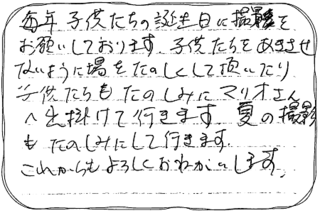 毎年子供たちの誕生日に撮影を
お願いしております。子供たちをあきさせ
ないように場をたのしくして頂いたり
子供たちもたのしみにマリオさん
へ出掛けて行きます。夏の撮影
もたのしみにして行きます。
これからもよろしくおねがいします。